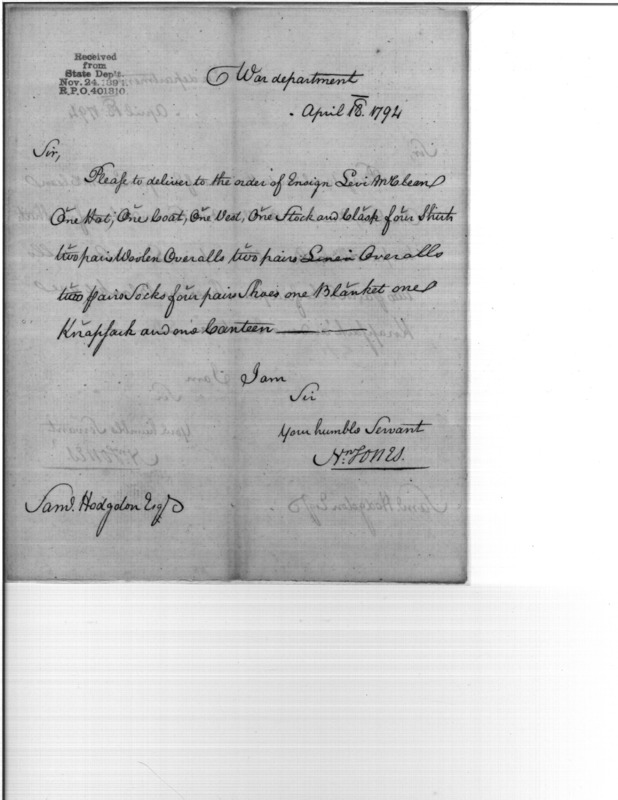 Received
from
State Dep't.
Nov. 24, 1894.
R.P.O. 401310.
War department
April 18. 1794
Sir,
Please to deliver to the order of Ensign Levi McClean
One Hat, One Coat, One Vest, One Stock and Clasp four Shirts
two pairs Woolen Overalls two pairs Linen Overalls
two pairs Socks four pairs Shoes one Blanket one
Knapsack and one Canteen
I am
Sir
Your humble Servant
Nn JONES.
Saml. Hodgdon Esqr